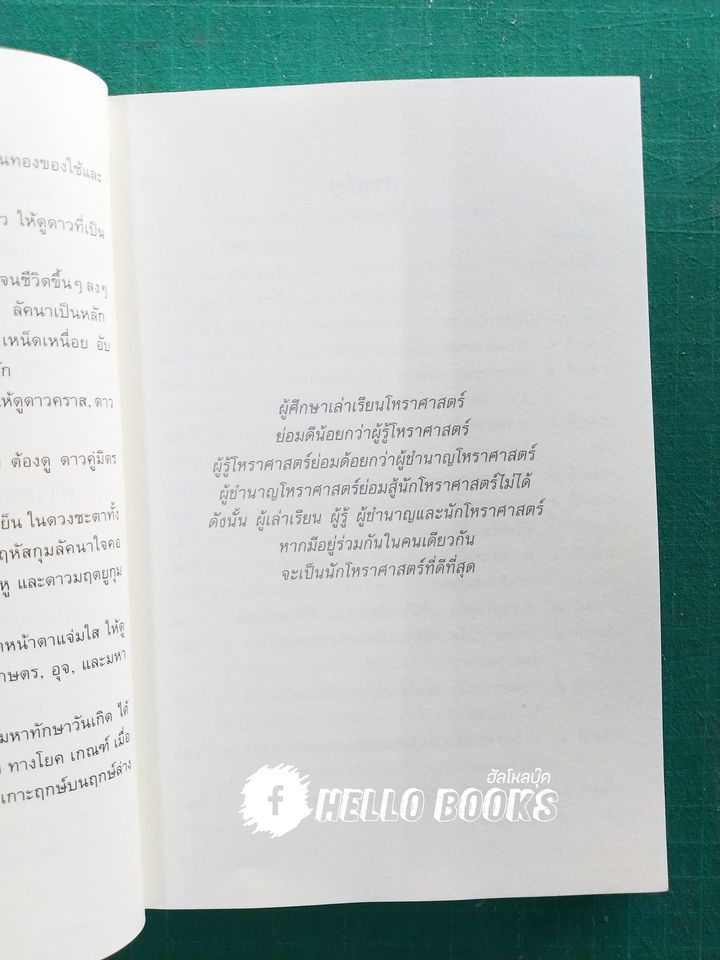 นทองของใช้และ
ว ให้ดูดาวที่เป็น
จนชีวิตขึ้นๆ ลงๆ
ลัคนาเป็นหลัก
เหน็ดเหนื่อย อับ
ัก
ห้ดูดาวคราส, ดาว
ต้องดู ดาวคู่มิตร
ย็น ในดวงชะตาทั้ง
ฤหัสกุมลัคนาใจคอ
หู และดาวมฤตยูกุม
ดหน้าตาแจ่มใส ให้ดู
กษตร, อุจ, และมหา
มหาทักษาวันเกิด ได้
ทางโยค เกณฑ์ เมื่อ
เกาะฤกษ์บนฤกษ์ล่าง
ผู้ศึกษาเล่าเรียนโหราศาสตร์
ย่อมดีน้อยกว่าผู้รู้โหราศาสตร์
ผู้รู้โหราศาสตร์ย่อมด้อยกว่าผู้ชำนาญโหราศาสตร์
ผู้ชำนาญโหราศาสตร์ย่อมสู้นักโหราศาสตร์ไม่ได้
ดังนั้น ผู้เล่าเรียน ผู้รู้ ผู้ชำนาญและนักโหราศาสตร์
หากมีอยู่ร่วมกันในคนเดียวกัน
จะเป็นนักโหราศาสตร์ที่ดีที่สุด
ฮัลโหลบุ๊ค
f HELLO BOOKS